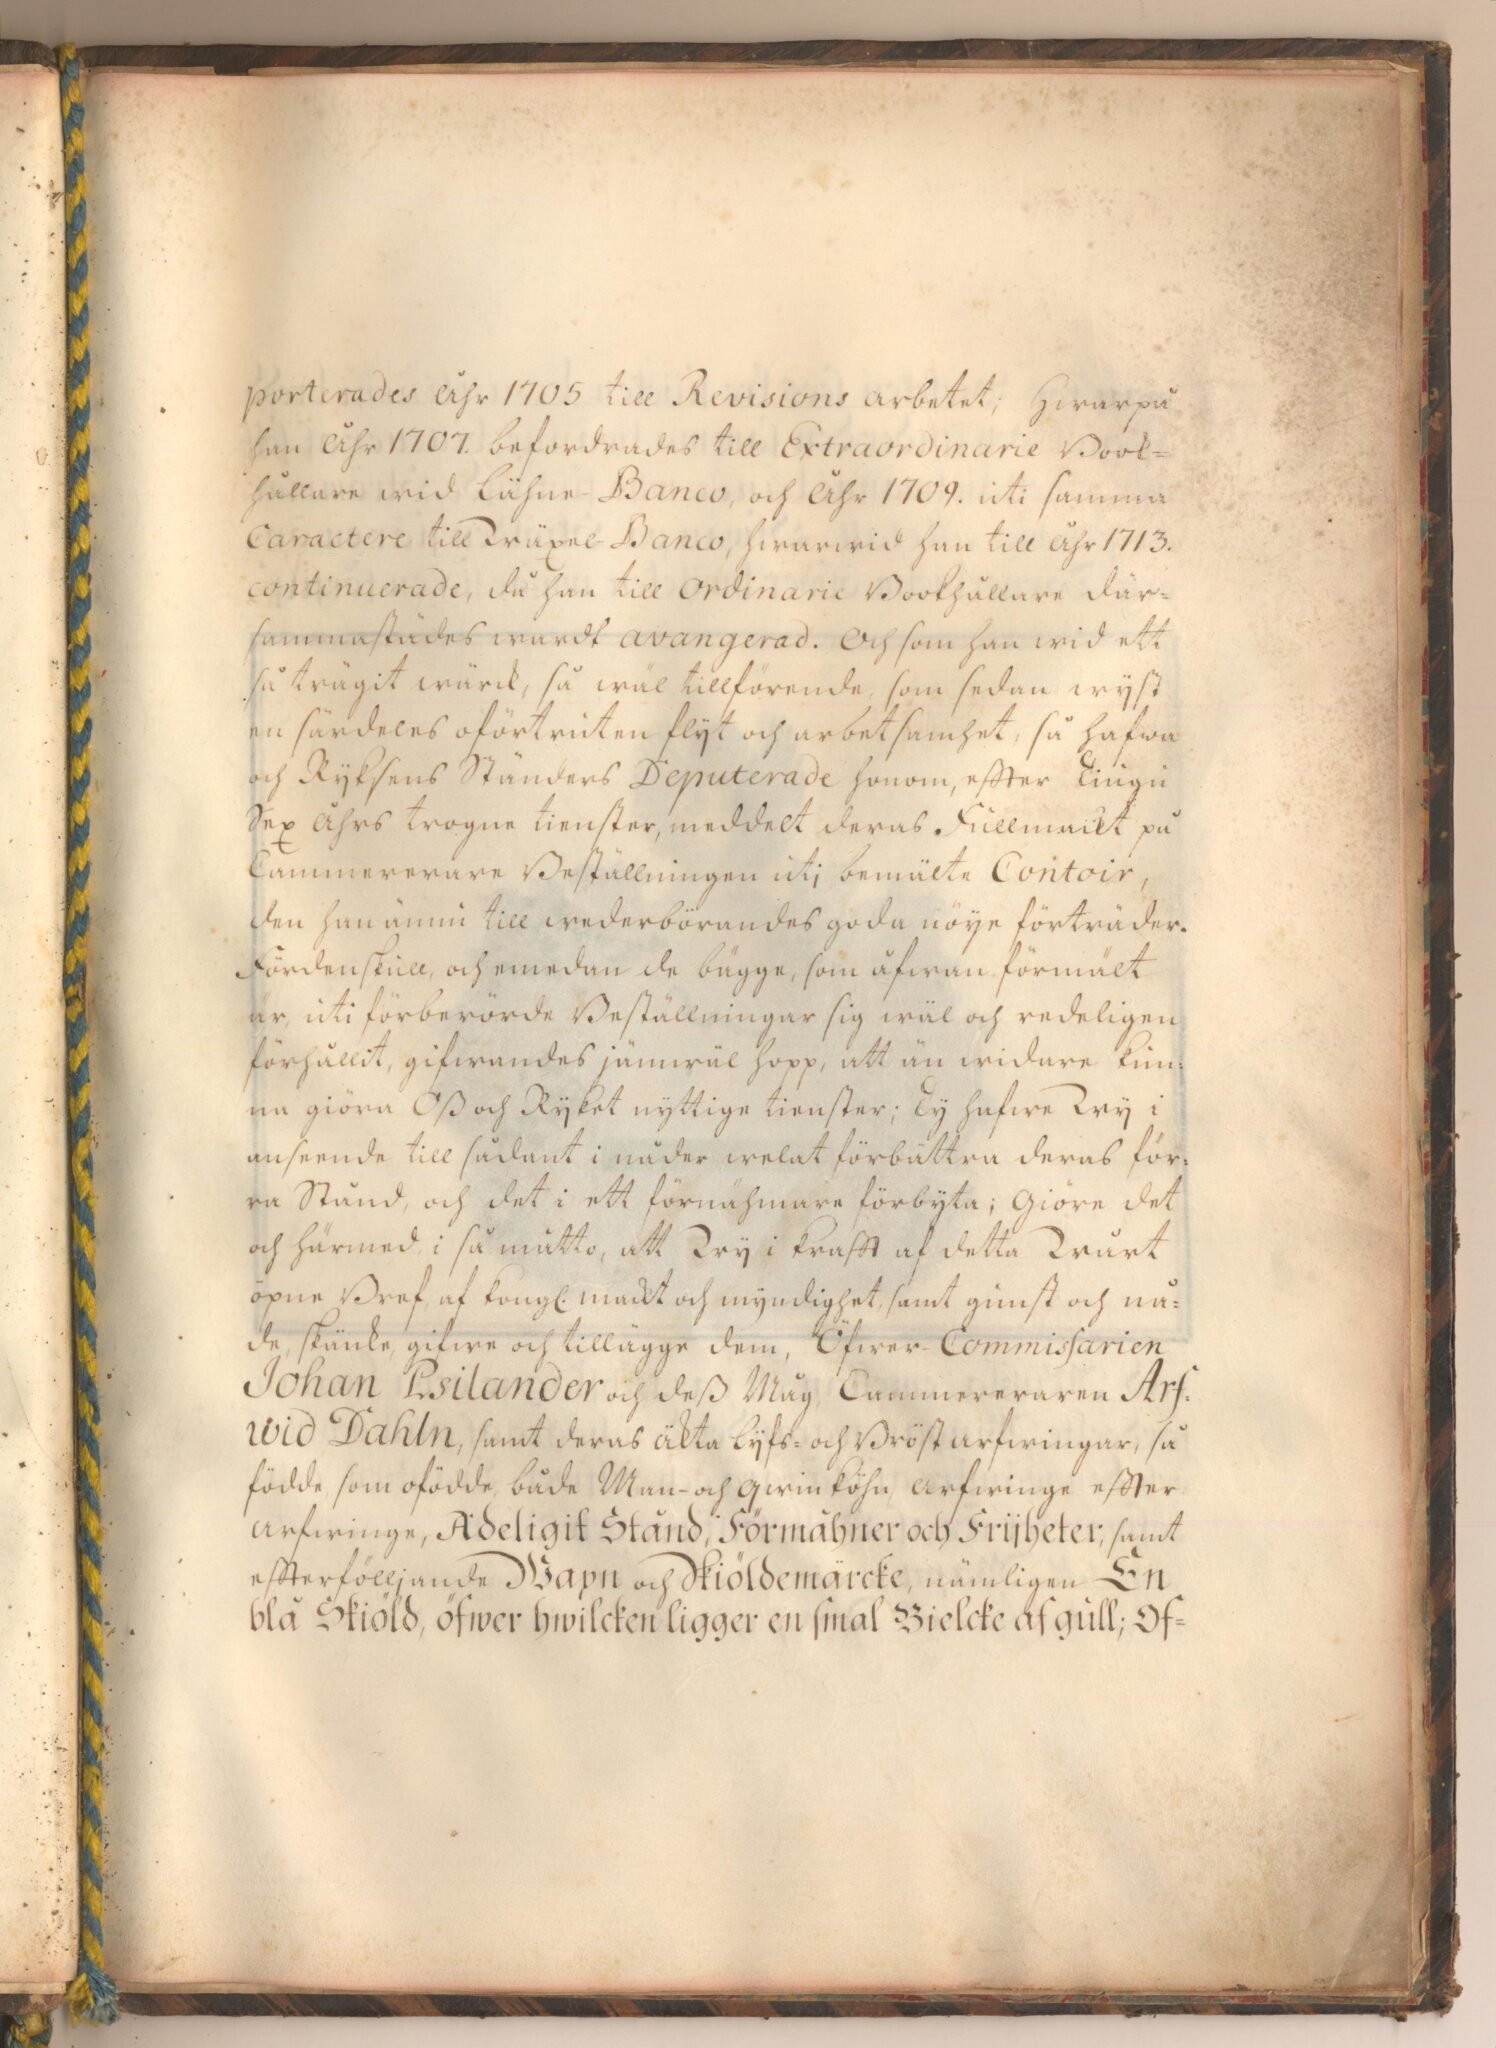 porterades Åhr 1705 till Revisions arbetet; Hwarpå
han Åhr 1707. befordrades till Extraordinarie Book-
hållare wid Lähne-Banco, och Åhr 1709. uti samma
Caractere till Wäxel-Banco, hwarwid han till Åhr 1713.
continuerade, då han till Ordinarie Bookhållare där-
sammastädes wardt avangerad. Och som han wid ett
så trägit wärck, så wäl tillförende, som sedan wyst
en särdeles oförtruten flyt och arbetsamhet, så hafwa
och Ryksens Ständers Deputerade honom, effter Tiugu
Sex Åhrs trogne tienster, meddelt deras Fullmackt på
Cammererare Beställningen uti bemälte Contoir,
den han ännu till wederbörandes goda nöye förträder.
Fördenskull, och emedan de bägge, som åfwan förmält
är, uti förberörde Beställningar sig wäl och redeligen
förhållit, gifwandes jämwäl hopp, att än widare kun-
na giöra Oß och Ryket nyttige tienster; Ty hafwe Wy i
anseende till sådant i nåder welat förbättra deras för-
ra Stånd, och det i ett förnähmare förbyta; Giöre det
och härmed, i så mätto, att Wy i krafft af detta Wårt
öpne Bref, af kongl. mackt och myndighet, samt gunst och nå-
de, skäncke, gifwe och tillägge dem, Öfwer-Commissarien
Johan Psilander och deß Måg, Cammereraren Arf-
wid Dahln, samt deras äckta Lyfs- och Bröst arfwingar, så
födde som ofödde, både Man- och Qwinköhn, arfwinge effter
arfwinge, Adeligit Stånd, Förmåhner och Frijheter, samt
effterfölljande Wapn och Skiöldemärcke, nämligen En
blå Skiöld, öfwer hwilcken ligger en smal Bielcke af gull; Of-